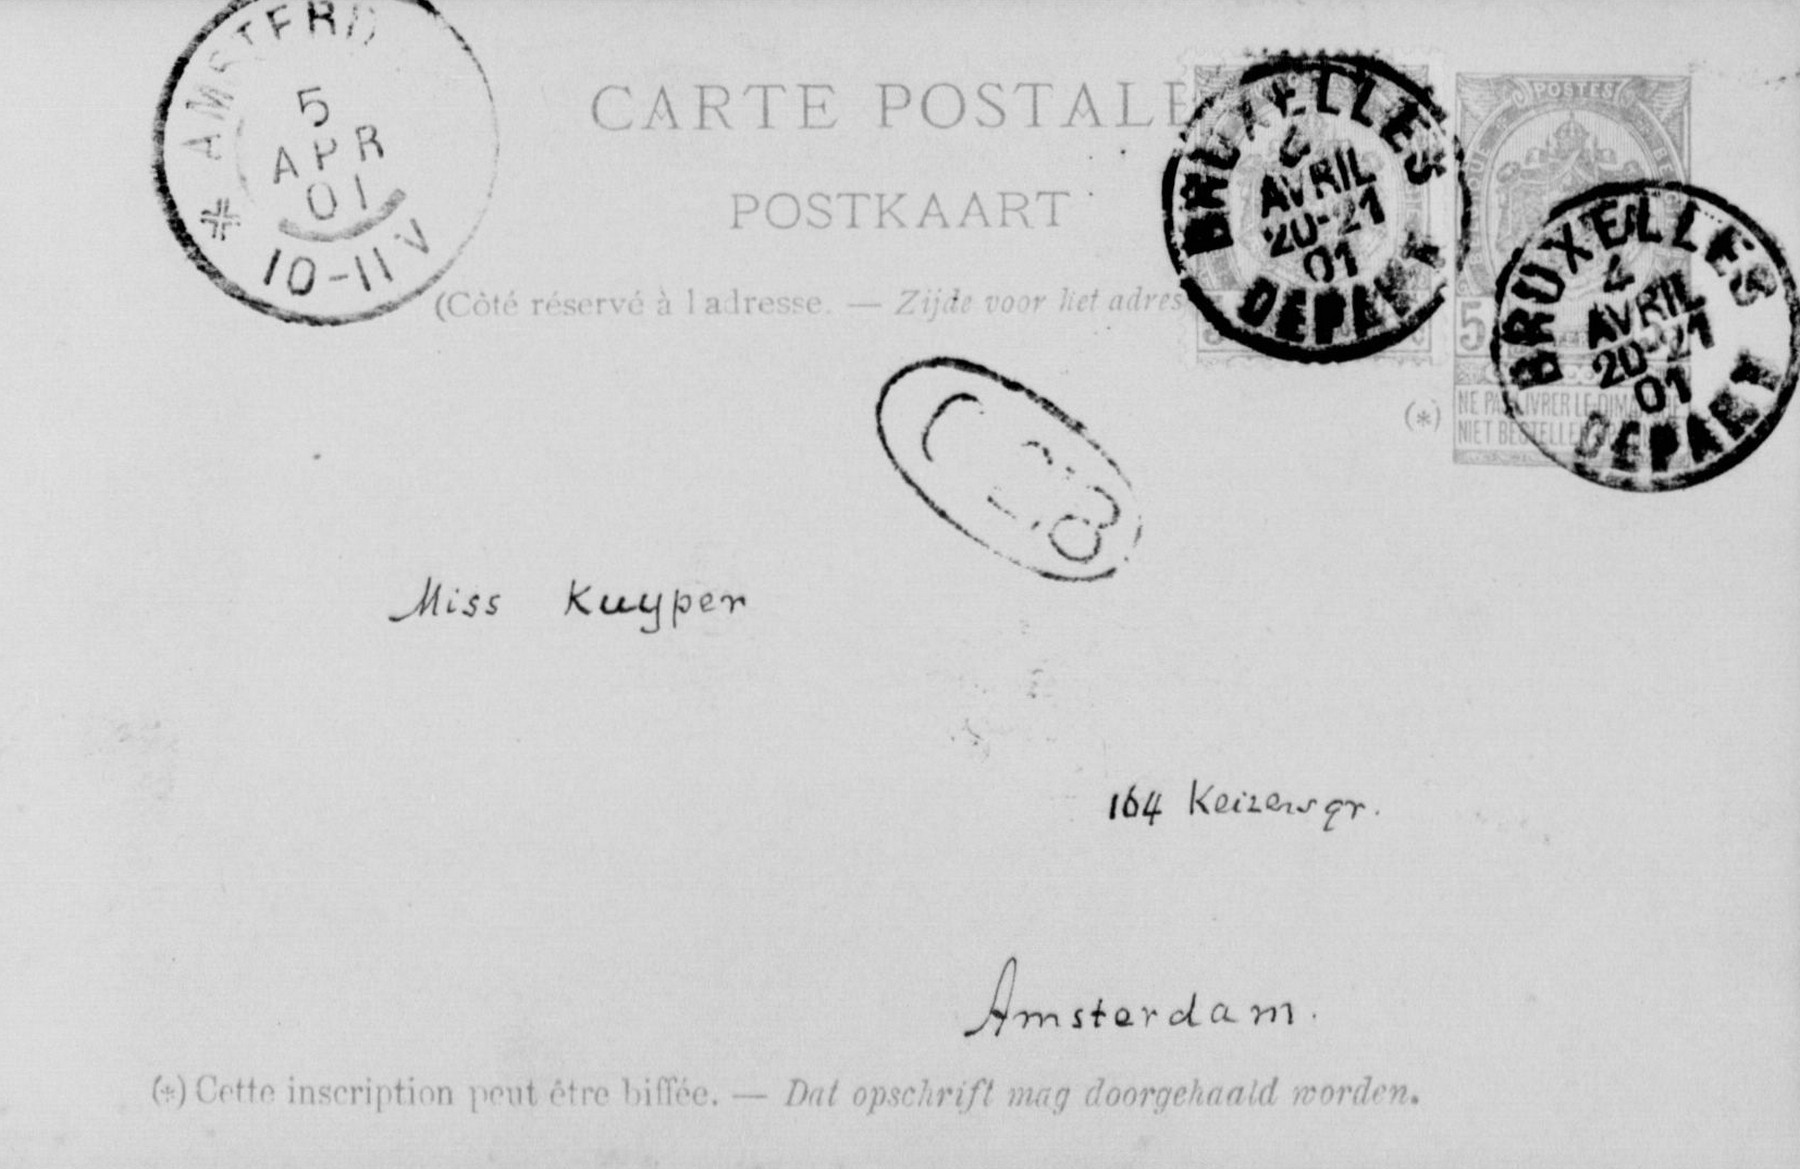 AMSTERD
5
APR
01
10-11 V
CARTE POSTALE
POSTKAART
(Côté réservé à l'adresse. — Zijde voor het adres
BRUXELLES
4
AVRIL
20-21
01
DEPART
POSTES
5
BRUXELLES
4
AVRIL
20-21
01
DEPART
(*)
NE PAS LIVRER LE DIMA
NIET BESTELLE
Miss Kuyper
164 Keizersgr.
Amsterdam.
(*) Cette inscription peut être biffée. — Dat opschrift mag doorgehaald worden.